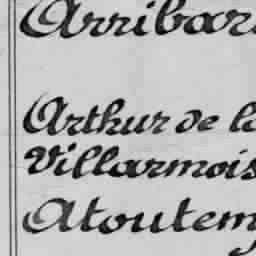 Arribar
Arthur de la
Villarmois
Atoutem